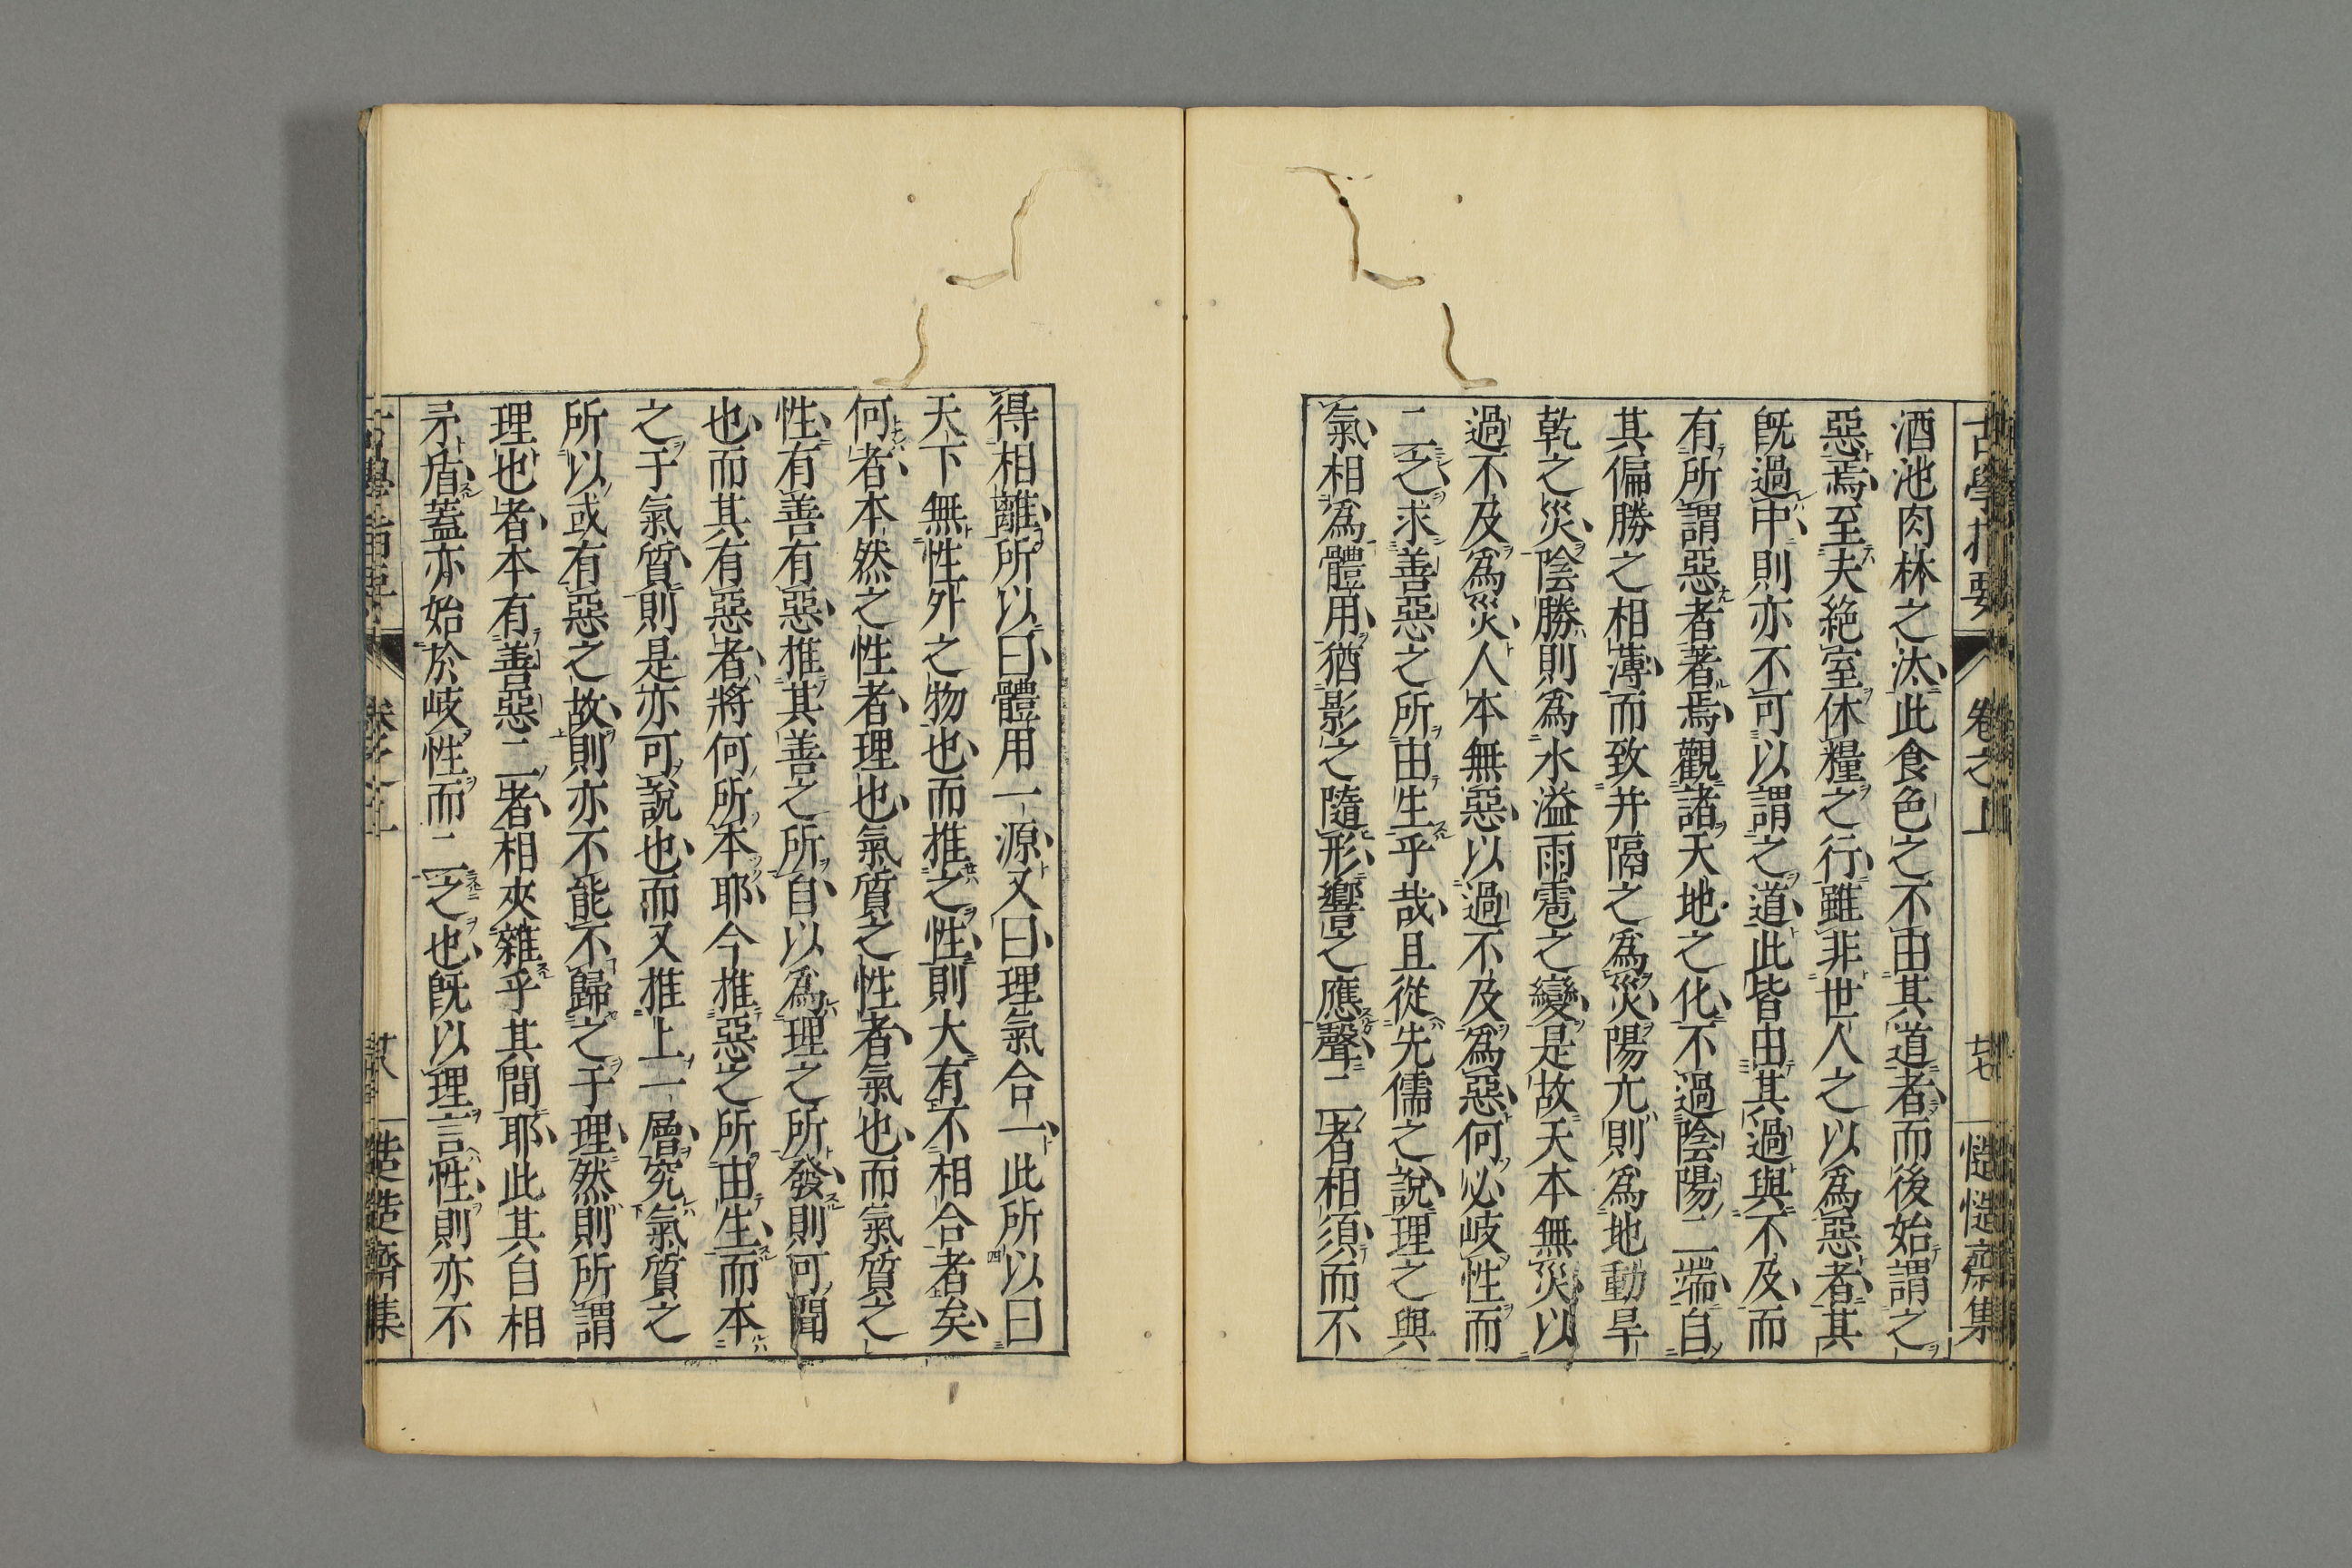 古學指要 卷之上 廿七 慥慥齋集
酒池肉林之汰此食色之不由其道者而後始謂之
惡焉至夫絶室休糧之行雖非世人之以爲惡者其
既過中則亦不可以謂之道此皆由其過與不及而
有所謂惡者著焉觀諸天地之化不過陰陽二端自
其偏勝之相薄而致并隔之爲災陽亢則爲地動旱
乾之災陰勝則爲水溢雨雹之變是故天本無災以
過不及爲災人本無惡以過不及爲惡何必岐性而
二之求善惡之所由生乎哉且從先儒之說理之與
氣相爲體用猶影之隨形響之應聲二者相須而不
得相離所以曰體用一源又曰理氣合一此所以曰
天下無性外之物也而推之性則大有不相合者矣
何者本然之性者理也氣質之性者氣也而氣質之
性有善有惡推其善之所自以爲理之所發則可聞
也而其有惡者將何所本耶今推惡之所由生而本
之于氣質則是亦可說也而又推上一層究氣質之
所以或有惡之故則亦不能不歸之于理然則所謂
理也者本有善惡二者相夾雜乎其間耶此其自相
矛盾蓋亦始於岐性而二之也既以理言性則亦不